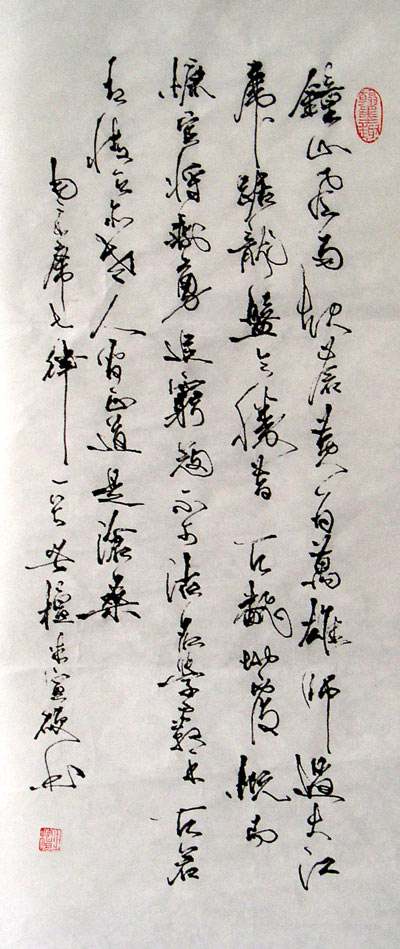 鐘山風雨起蒼黃百萬雄師過大江
虎踞龍盤今勝昔天翻地覆慨而
慷宜將剩勇追窮寇不可沽名學霸王天若
有情天亦老人間正道是滄桑
毛主席七律一首